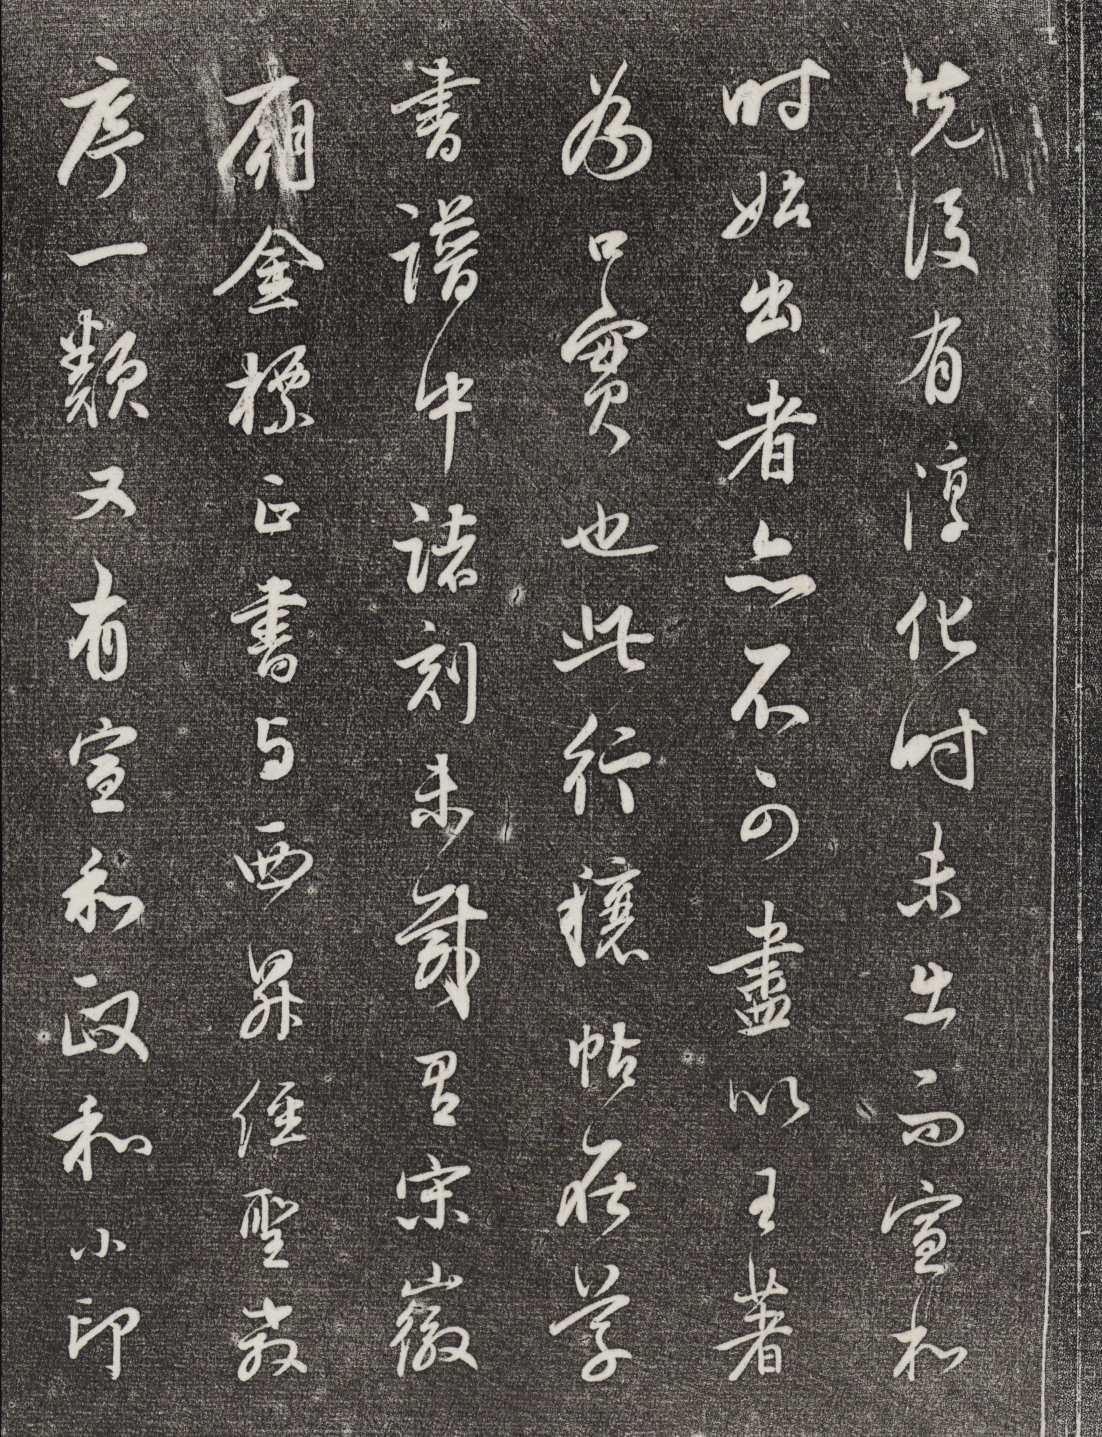 先後有淳化時未出而宣和
時始出者亦不可盡以王著
為口實也此行穰帖在學
書譜中諸刻未載君宋徽
廟金標正書与西昇經聖教
序一類又有宣和政和小印